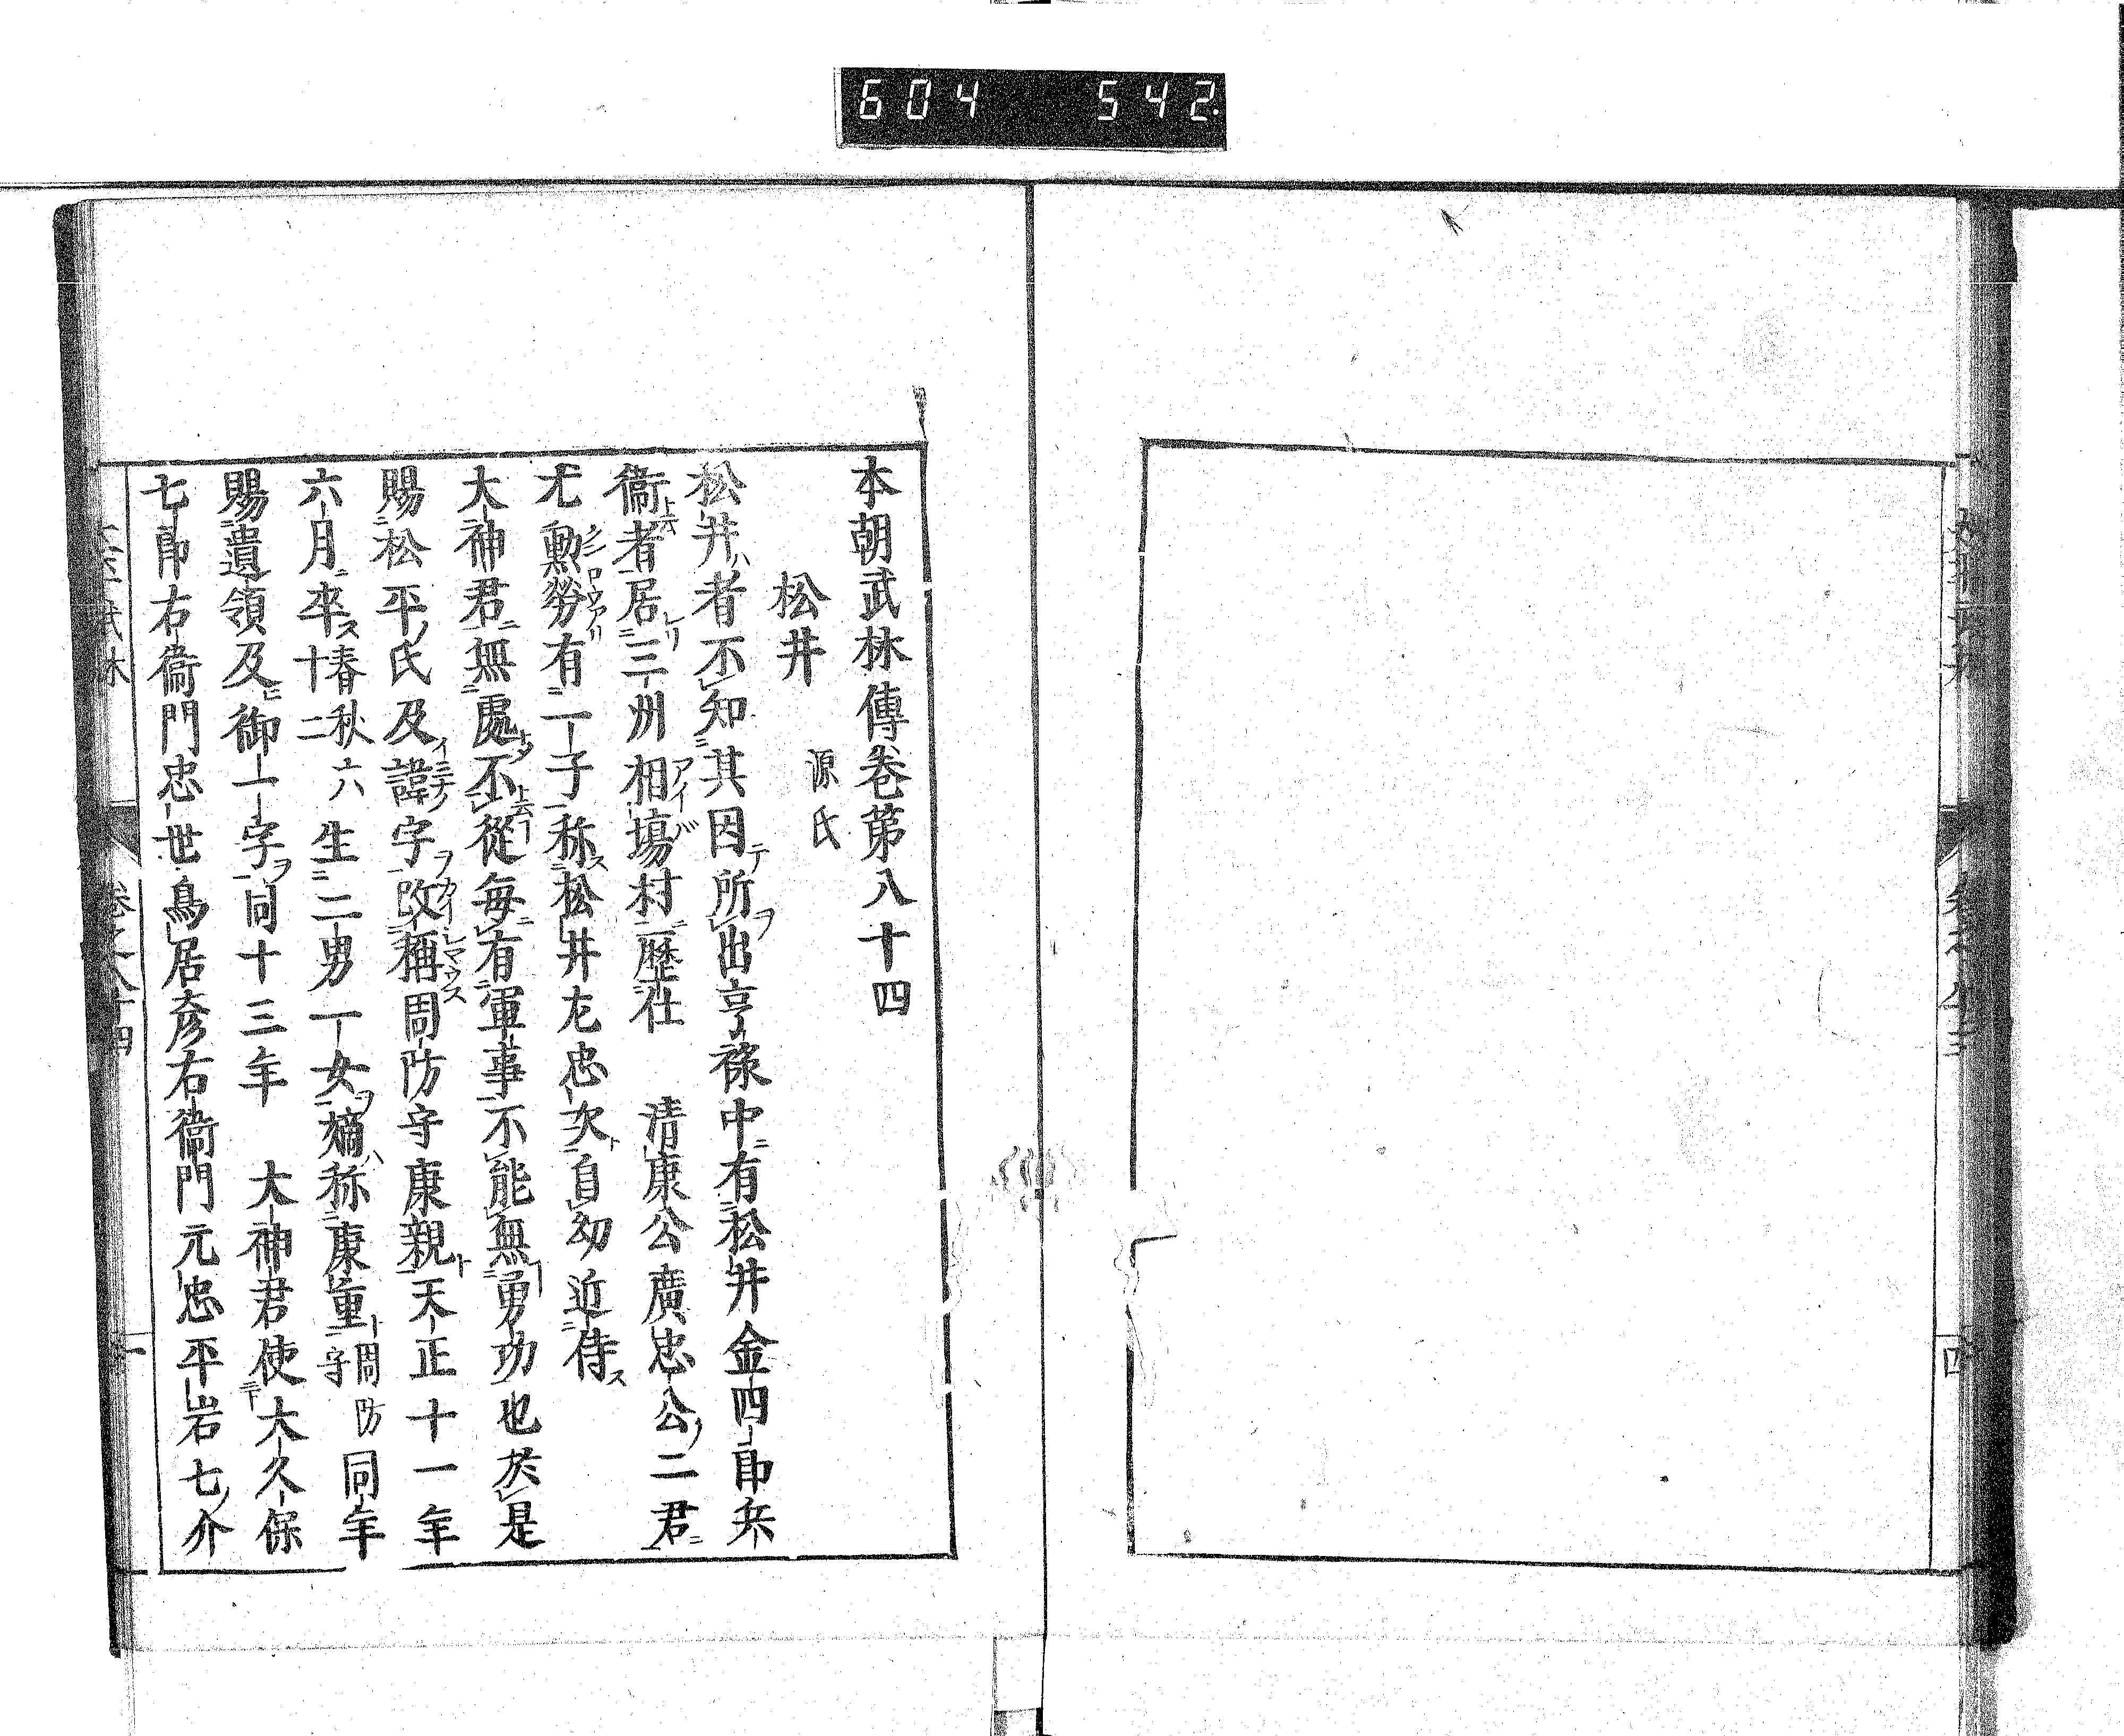 604 542
本朝武林傳卷第八十四
松井 源氏
松井者不知其因所出亨禄中有松井金四郎兵
衞者居三州相塲村歴仕 清康公廣忠公二君
尤勲勞有一子称松井左忠次自幼近侍
大神君無處不從毎有軍事不能無勇功也於是
賜松平氏及諱字改稱周防守康親天正十一年
六月卒春秋六十二生二男一女嫡称康重周防守同年
賜遺領及御一字同十三年 大神君使大久保
七郎右衞門忠世鳥居彦右衞門元忠平岩七介
卷之八十四 一
四